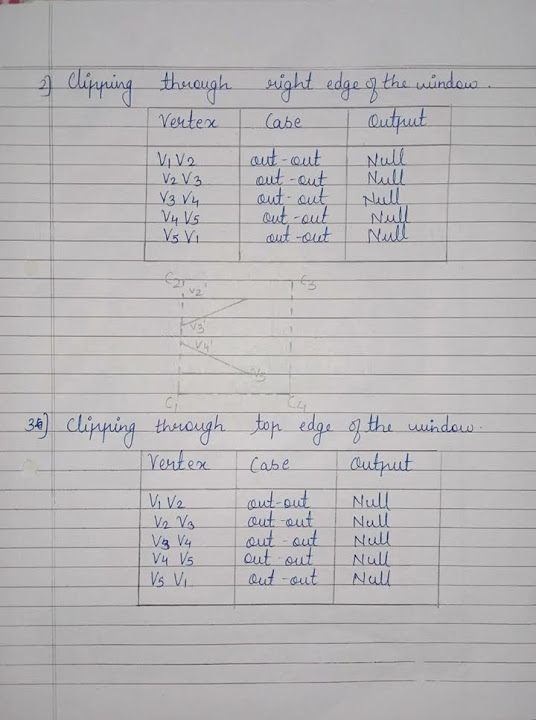 2) Clipping through right edge of the window.
Vertex Case Output
V1 V2 out-out Null
V2 V3 out-out Null
V3 V4 out-out Null
V4 V5 out-out Null
V5 V1 out-out Null
C2 V2' C3
V3'
V4'
V5
C1 C4
3) Clipping through top edge of the window.
Vertex Case Output
V1 V2 out-out Null
V2 V3 out-out Null
V3 V4 out-out Null
V4 V5 out-out Null
V5 V1 out-out Null